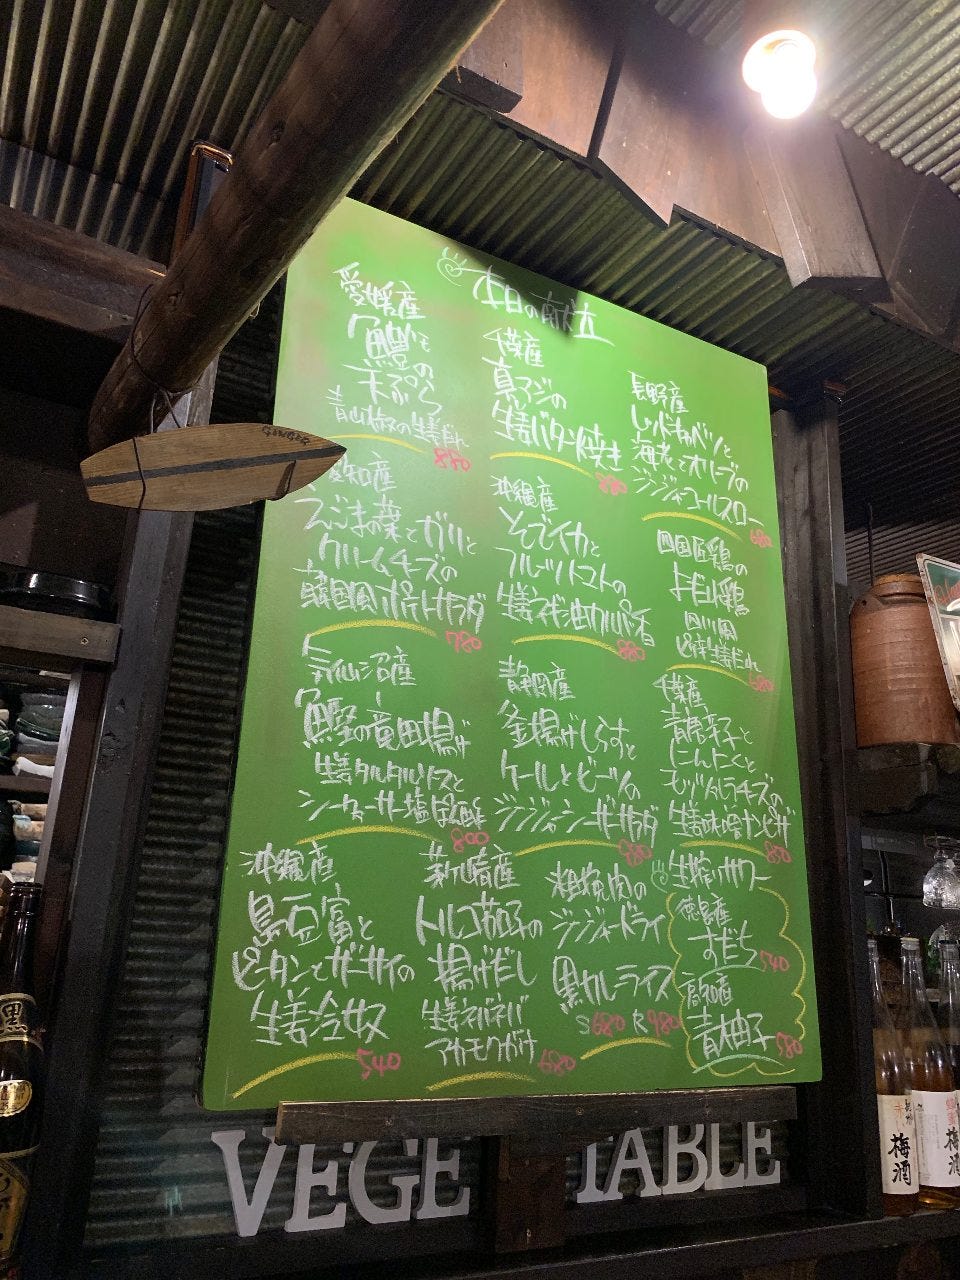 本日の献立
愛媛産
鱧の
天ぷら
青山椒の生姜だれ
880
愛知産
えごまの葉とガリと
クリームチーズの
韓国風ポテトサラダ
780
気仙沼産
鰹の竜田揚げ
生姜タルタルソースと
シークヮーサー塩ポン酢
800
沖縄産
島豆富と
ピータンとザーサイの
生姜冷奴
540
千葉産
真アジの
生姜バタン焼き
880
沖縄産
そでイカと
フルーツトマトの
生姜ネギ油カルパッチョ
880
静岡産
釜揚げしらすと
ケールとビーツの
ジンジャーシーザーサラダ
880
茅ヶ崎産
トルコ茄子の
揚げだし
生姜ネバネバ
アカモクがけ
680
長野産
レッドキャベツと
海老とオリーブの
ジンジャーコールスロー
680
四国匠鶏の
よだれ鶏
四川風
ピリ辛生姜だれ
680
千葉産
青唐辛子と
にんにくと
モッツァレラチーズの
生姜味噌ナンピザ
850
粗挽肉の
ジンジャードライ
黒カレーライス
S680 R980
生搾りサワー
徳島産
すだち
540
高知産
青柚子
580
VEGETABLE
GINGER
黒
梅酒
梅酒